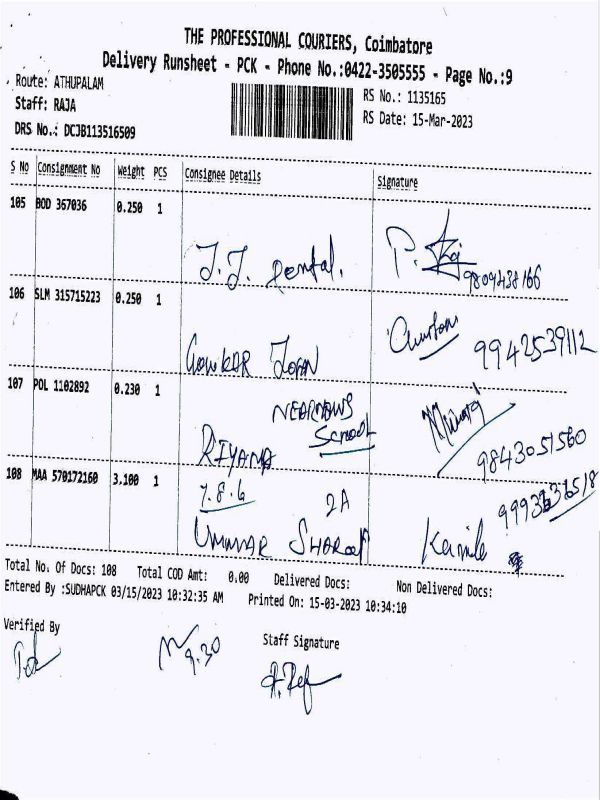 THE PROFESSIONAL COURIERS, Coimbatore
Delivery Runsheet - PCK - Phone No.:0422-3505555 - Page No.:9
Route: ATHUPALAM
Staff: RAJA
DRS No.: DCJB113516509
RS No.: 1135165
RS Date: 15-Mar-2023
S No Consignment No Weight PCS Consignee Details Signature
105 BOD 367036 0.250 1
J.J. Dental. P. 9809438166
106 SLM 315715223 0.250 1
9942539112
JOAN
107 POL 1102892 0.230 1
School
RIYANA 9843051560
108 MAA 570172160 3.100 1
7.8.6 2A
UMMAR
Total No. Of Docs: 108 Total COD Amt: 0.00 Delivered Docs: Non Delivered Docs:
Entered By :SUDHAPCK 03/15/2023 10:32:35 AM Printed On: 15-03-2023 10:34:10
Verified By Staff Signature
9.30